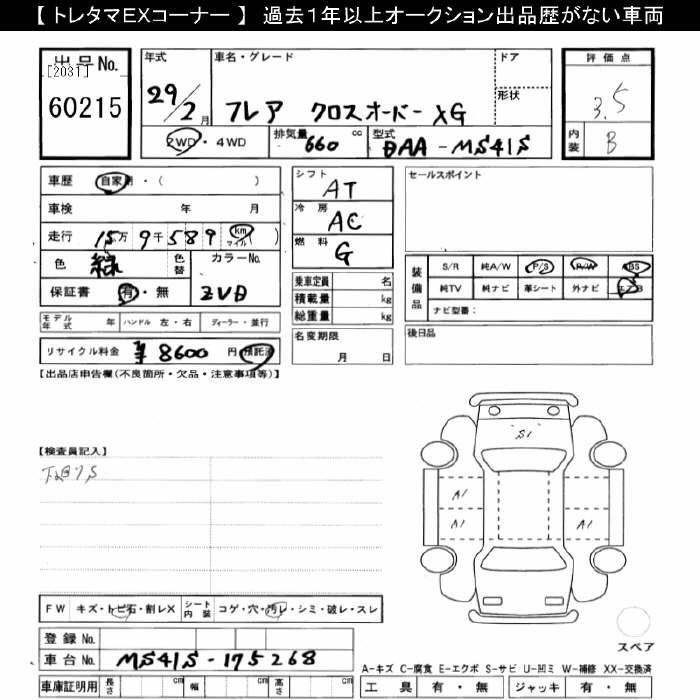 【 トレタマEXコーナー 】 過去1年以上オークション出品歴がない車両
出品No.
[2031]
60215
年式
29/2月
車名・グレード
フレア クロスオーバー XG
ドア
形状
評価点
3.5
内装 B
2WD・4WD
排気量 660 cc
型式 DAA-MS41S
車歴 自家用・( )
車検 年 月
走行 15万9千589 km マイル ( )
色 緑 色替 カラーNo.
保証書 有・無 ZVD
モデル年式 年 ハンドル 左・右 ディーラー・並行
リサイクル料金 ¥8600円 預託済
シフト AT
冷房 AC
燃料 G
乗車定員 名
積載量 kg
総重量 kg
名変期限
月 日
セールスポイント
装備品
S/R 純A/W P/S P/W ABS
純TV 純ナビ 革シート 外ナビ エアB
ナビ型番:
後日品
【出品店申告欄(不良箇所・欠品・注意事項等)】
【検査員記入】
S1
A1
A1 A1
FW キズ・トビ石・割レX シート内装 コゲ・穴・汚レ・シミ・破レ・スレ
登録 No.
車台 No. MS41S-175268
車庫証明用 長さ cm 幅 cm 高さ cm
スペア
A-キズ C-腐食 E-エクボ S-サビ U-凹ミ W-補修 XX-交換済
工具 有・無 ジャッキ 有・無